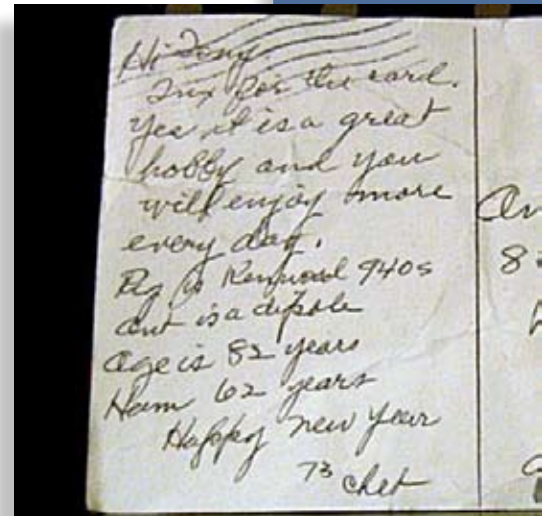 Hi
Tnx for the card.
Yes it is a great
hobby and you
will enjoy more
every day.
Rig is Kenwood 940s
Ant is a dipole
Age is 82 years
Ham 62 years
Happy New Year
73 Chet